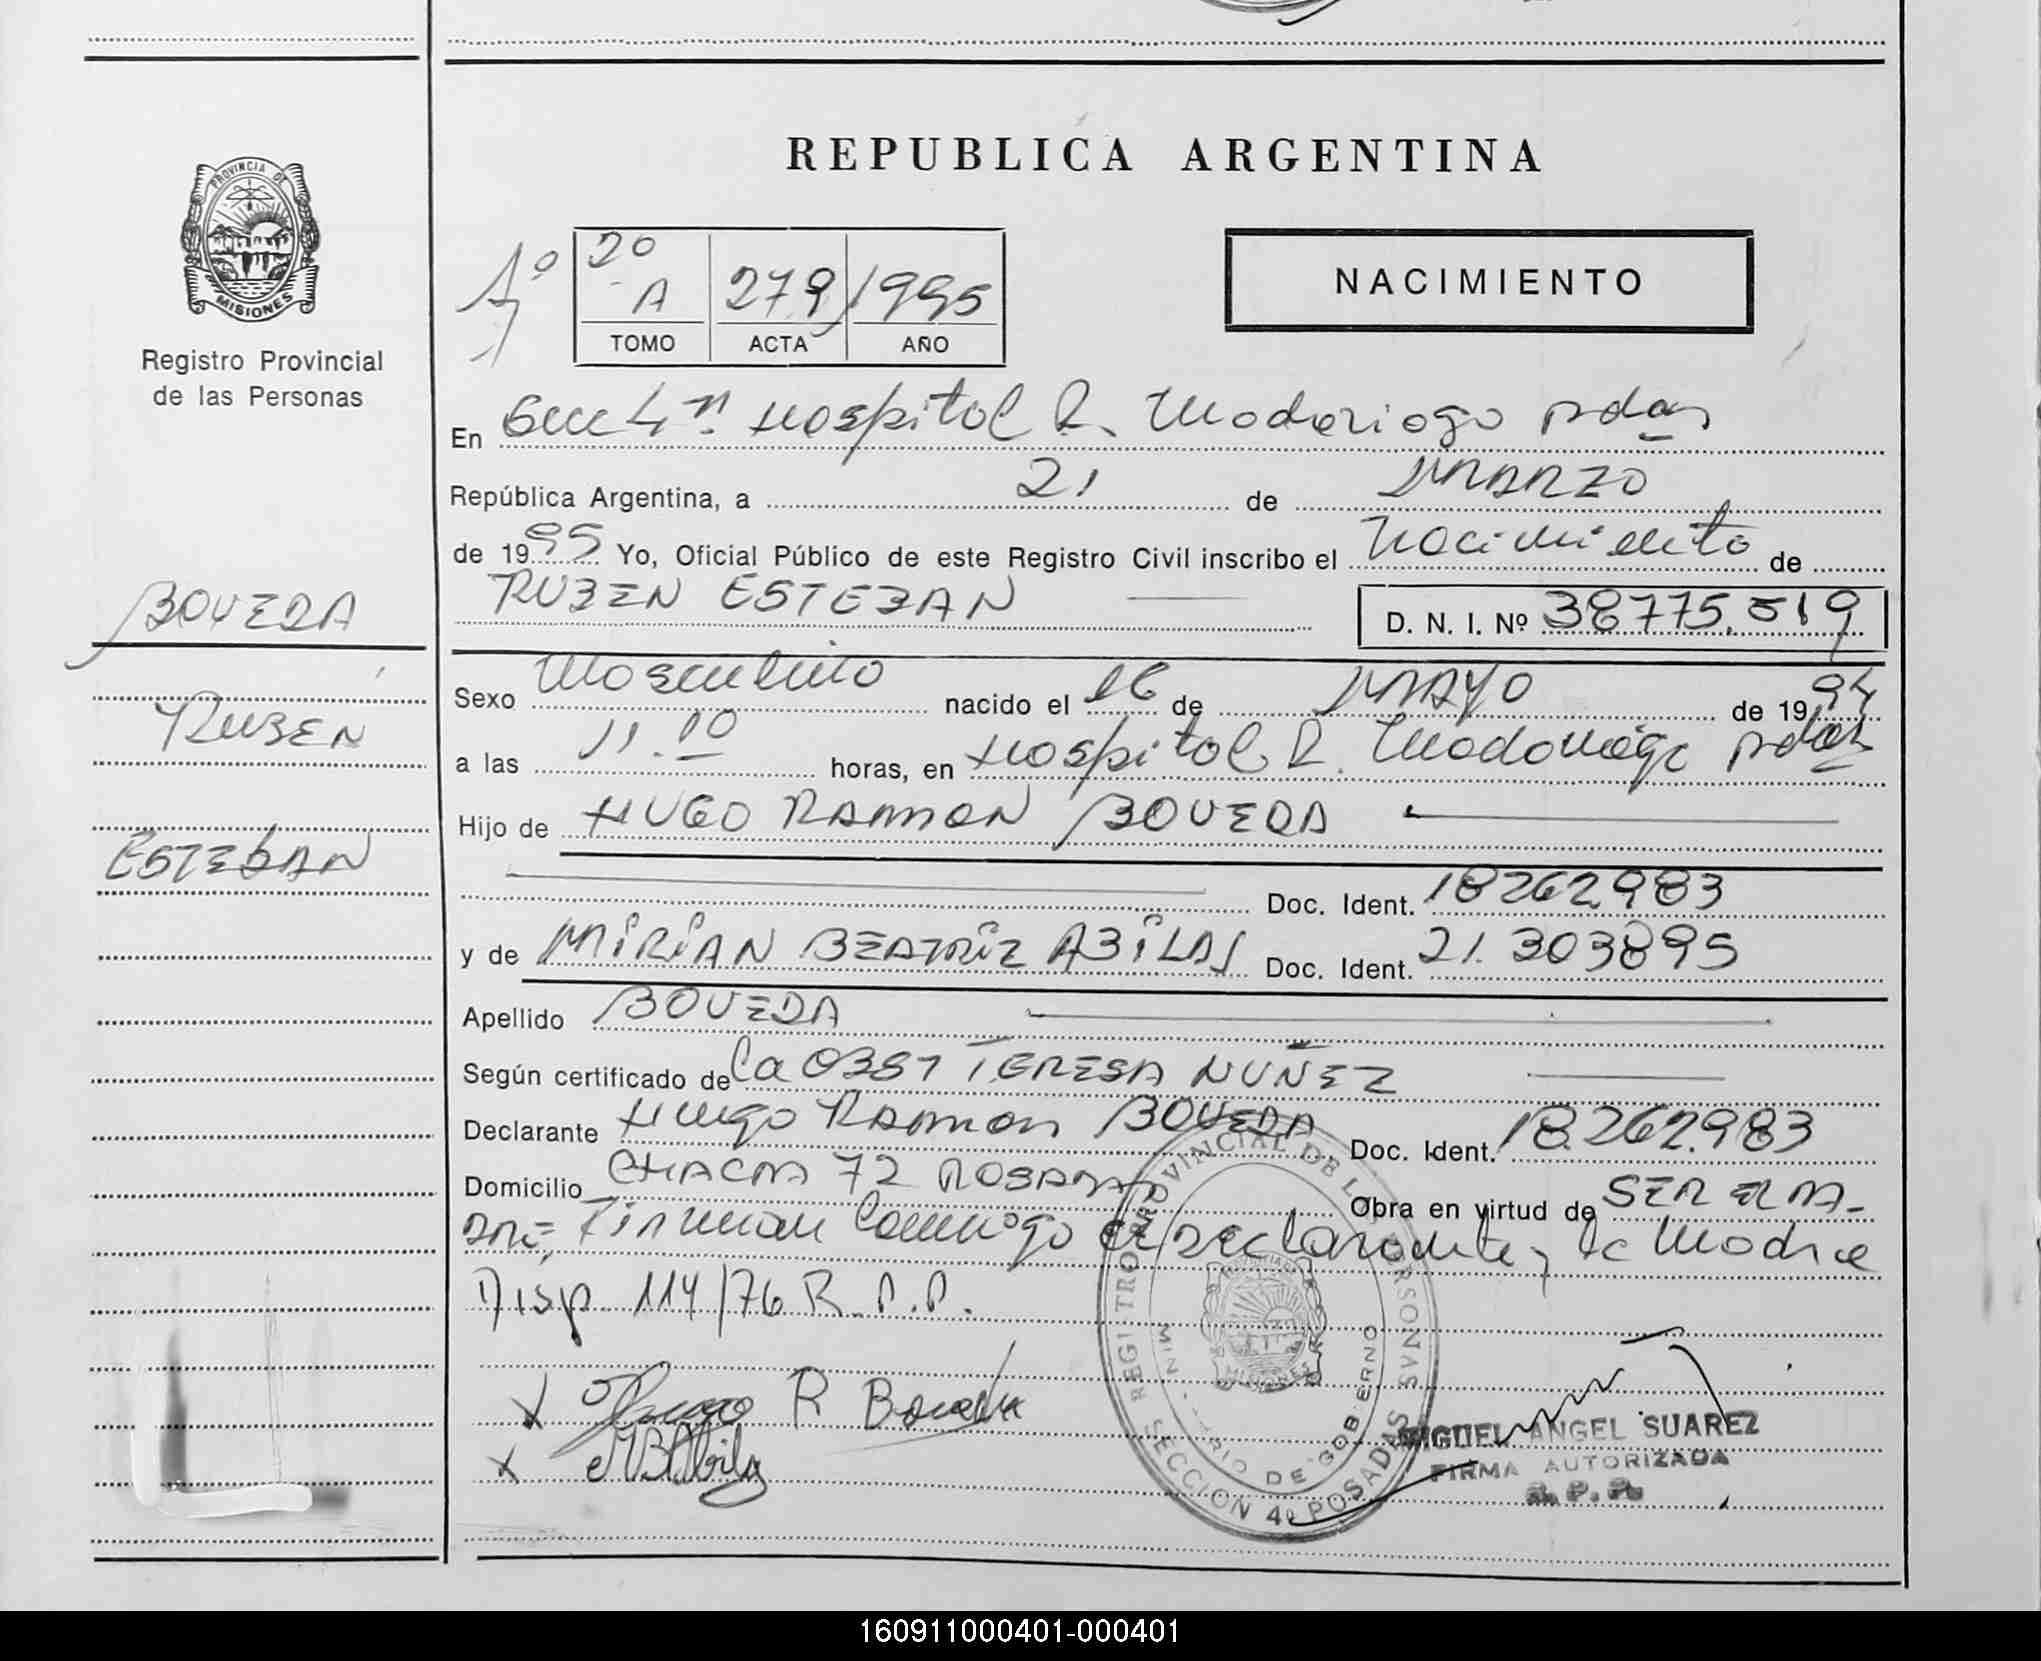 PROVINCIA DE
MISIONES
Registro Provincial
de las Personas
BOVEDA
RUBEN
ESTEBAN
REPUBLICA ARGENTINA
1º
2º
A 279 1995
TOMO ACTA AÑO
NACIMIENTO
En Secc 4ª Hospital R. Madariaga Pdas
República Argentina, a 21 de MARZO
de 1995 Yo, Oficial Público de este Registro Civil inscribo el Nacimiento de
RUBEN ESTEBAN D. N. I. Nº 38775.519
Sexo Masculino nacido el 16 de MAYO de 1994
a las 11.10 horas, en Hospital R. Madariaga Pdas
Hijo de HUGO RAMON BOVEDA
Doc. Ident. 18262.983
y de MIRIAN BEATRIZ ABILAS Doc. Ident. 21.303895
Apellido BOVEDA
Según certificado de La OBST TERESA NUÑEZ
Declarante Hugo RAMON BOVEDA Doc. Ident. 18.262.983
Domicilio CHACRA 72 Obra en virtud de SER EL PA-
DRE, Firman Conmigo el Declarante y la Madre
Disp 114/76 R.P.P.
x Hugo R Boveda
x MBAbila
REGISTRO PROVINCIAL DE LAS PERSONAS
MINISTERIO DE GOBIERNO
MISIONES
SECCION 4º POSADAS
MIGUEL ANGEL SUAREZ
FIRMA AUTORIZADA
R. P. P.
160911000401-000401